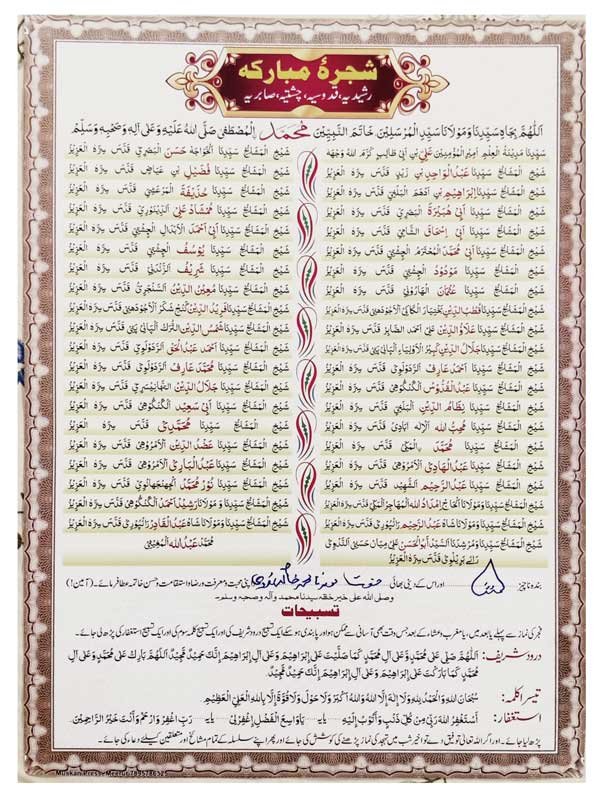 شجرۂ مبارکہ
رشیدیہ، قدوسیہ، چشتیہ، صابریہ
اَللّٰهُمَّ بِجَاهِ سَيِّدِنَا وَمَوْلَانَا سَيِّدِ الْمُرْسَلِيْنَ خَاتَمِ النَّبِيِّيْنَ مُحَمَّدٍ الْمُصْطَفٰى صَلَّى اللهُ عَلَيْهِ وَعَلٰى آلِهٖ وَصَحْبِهٖ وَسَلَّمَ
سَيِّدِنَا مَدِيْنَةِ الْعِلْمِ اَمِيْرِ الْمُؤْمِنِيْنَ عَلِيِّ بْنِ اَبِيْ طَالِبٍ كَرَّمَ اللهُ وَجْهَهٗ
شَيْخِ الْمَشَائِخِ سَيِّدِنَا الْخَوَاجَهْ حَسَنِ الْبَصَرِيِّ قَدَّسَ سِرَّهُ الْعَزِيْزَ
شَيْخِ الْمَشَائِخِ سَيِّدِنَا عَبْدِ الْوَاحِدِ بْنِ زَيْدٍ قَدَّسَ سِرَّهُ الْعَزِيْزَ
شَيْخِ الْمَشَائِخِ سَيِّدِنَا فُضَيْلِ بْنِ عِيَاضٍ قَدَّسَ سِرَّهُ الْعَزِيْزَ
شَيْخِ الْمَشَائِخِ سَيِّدِنَا اِبْرَاهِيْمَ بْنِ اَدْهَمَ الْبَلْخِيِّ قَدَّسَ سِرَّهُ الْعَزِيْزَ
شَيْخِ الْمَشَائِخِ سَيِّدِنَا حُذَيْفَةَ الْمَرْعَشِيِّ قَدَّسَ سِرَّهُ الْعَزِيْزَ
شَيْخِ الْمَشَائِخِ سَيِّدِنَا اَبِيْ هُبَيْرَةَ الْبَصَرِيِّ قَدَّسَ سِرَّهُ الْعَزِيْزَ
شَيْخِ الْمَشَائِخِ سَيِّدِنَا مُمْشَادْ عَلِيِّ الدِّيْنَوَرِيِّ قَدَّسَ سِرَّهُ الْعَزِيْزَ
شَيْخِ الْمَشَائِخِ سَيِّدِنَا اَبِيْ اِسْحَاقَ الشَّامِيِّ قَدَّسَ سِرَّهُ الْعَزِيْزَ
شَيْخِ الْمَشَائِخِ سَيِّدِنَا اَبِيْ اَحْمَدَ الْاَبْدَالِ الْچِشْتِيِّ قَدَّسَ سِرَّهُ الْعَزِيْزَ
شَيْخِ الْمَشَائِخِ سَيِّدِنَا اَبِيْ مُحَمَّدٍ الْمُحْتَرَمِ الْچِشْتِيِّ قَدَّسَ سِرَّهُ الْعَزِيْزَ
شَيْخِ الْمَشَائِخِ سَيِّدِنَا يُوْسُفَ الْچِشْتِيِّ قَدَّسَ سِرَّهُ الْعَزِيْزَ
شَيْخِ الْمَشَائِخِ سَيِّدِنَا مَوْدُوْدِ الْچِشْتِيِّ قَدَّسَ سِرَّهُ الْعَزِيْزَ
شَيْخِ الْمَشَائِخِ سَيِّدِنَا شَرِيْفِ الزَّنْدَنِيِّ قَدَّسَ سِرَّهُ الْعَزِيْزَ
شَيْخِ الْمَشَائِخِ سَيِّدِنَا عُثْمَانَ الْهَارُوْنِيِّ قَدَّسَ سِرَّهُ الْعَزِيْزَ
شَيْخِ الْمَشَائِخِ سَيِّدِنَا مُعِيْنِ الدِّيْنِ السَّنْجَرِيِّ قَدَّسَ سِرَّهُ الْعَزِيْزَ
شَيْخِ الْمَشَائِخِ سَيِّدِنَا قُطْبِ الدِّيْنِ بَخْتِيَارَ الْكَاكِيِّ قَدَّسَ سِرَّهُ الْعَزِيْزَ
شَيْخِ الْمَشَائِخِ سَيِّدِنَا فَرِيْدِ الدِّيْنِ گَنْجْ شَكَرْ الْاَجُوْدَهْنِيِّ قَدَّسَ سِرَّهُ الْعَزِيْزَ
شَيْخِ الْمَشَائِخِ سَيِّدِنَا عَلَاءِ الدِّيْنِ عَلِيٍّ اَحْمَدَ الصَّابِرِ قَدَّسَ سِرَّهُ الْعَزِيْزَ
شَيْخِ الْمَشَائِخِ سَيِّدِنَا شَمْسِ الدِّيْنِ التُّرْكِ الْپَانِيْ پَتِيْ قَدَّسَ سِرَّهُ الْعَزِيْزَ
شَيْخِ الْمَشَائِخِ سَيِّدِنَا جَلَالِ الدِّيْنِ كَبِيْرِ الْاَوْلِيَاءِ الْپَانِيْ پَتِيْ قَدَّسَ سِرَّهُ الْعَزِيْزَ
شَيْخِ الْمَشَائِخِ سَيِّدِنَا اَحْمَدَ عَبْدِ الْحَقِّ الرُّدَوْلَوِيِّ قَدَّسَ سِرَّهُ الْعَزِيْزَ
شَيْخِ الْمَشَائِخِ سَيِّدِنَا اَحْمَدَ عَارِفِ الرُّدَوْلَوِيِّ قَدَّسَ سِرَّهُ الْعَزِيْزَ
شَيْخِ الْمَشَائِخِ سَيِّدِنَا مُحَمَّدِ عَارِفِ الرُّدَوْلَوِيِّ قَدَّسَ سِرَّهُ الْعَزِيْزَ
شَيْخِ الْمَشَائِخِ سَيِّدِنَا عَبْدِ الْقُدُّوْسِ الْگَنْگُوْهِيِّ قَدَّسَ سِرَّهُ الْعَزِيْزَ
شَيْخِ الْمَشَائِخِ سَيِّدِنَا جَلَالِ الدِّيْنِ التَّهَانِيْسَرِيِّ قَدَّسَ سِرَّهُ الْعَزِيْزَ
شَيْخِ الْمَشَائِخِ سَيِّدِنَا نِظَامِ الدِّيْنِ الْبَلْخِيِّ قَدَّسَ سِرَّهُ الْعَزِيْزَ
شَيْخِ الْمَشَائِخِ سَيِّدِنَا اَبِيْ سَعِيْدِ الْگَنْگُوْهِيِّ قَدَّسَ سِرَّهُ الْعَزِيْزَ
شَيْخِ الْمَشَائِخِ سَيِّدِنَا مُحِبِّ اللهِ اِلٰهٰ اٰبَادِيْ قَدَّسَ سِرَّهُ الْعَزِيْزَ
شَيْخِ الْمَشَائِخِ سَيِّدِنَا مُحَمَّدِيْ قَدَّسَ سِرَّهُ الْعَزِيْزَ
شَيْخِ الْمَشَائِخِ سَيِّدِنَا مُحَمَّدِ الْمَكِّيِّ قَدَّسَ سِرَّهُ الْعَزِيْزَ
شَيْخِ الْمَشَائِخِ سَيِّدِنَا عَضُدِ الدِّيْنِ الْاَمْرُوْهِيِّ قَدَّسَ سِرَّهُ الْعَزِيْزَ
شَيْخِ الْمَشَائِخِ سَيِّدِنَا عَبْدِ الْهَادِي الْاَمْرُوْهِيِّ قَدَّسَ سِرَّهُ الْعَزِيْزَ
شَيْخِ الْمَشَائِخِ سَيِّدِنَا عَبْدِ الْبَارِي الْاَمْرُوْهِيِّ قَدَّسَ سِرَّهُ الْعَزِيْزَ
شَيْخِ الْمَشَائِخِ سَيِّدِنَا عَبْدِ الرَّحِيْمِ الشَّهِيْدِ قَدَّسَ سِرَّهُ الْعَزِيْزَ
شَيْخِ الْمَشَائِخِ سَيِّدِنَا نُوْرِ مُحَمَّدِ الْجَهَنْجَهَانَوِيِّ قَدَّسَ سِرَّهُ الْعَزِيْزَ
شَيْخِ الْمَشَائِخِ سَيِّدِنَا وَمَوْلَانَا الْحَاجِّ اِمْدَادِ اللهِ الْمُهَاجِرِ الْمَكِّيِّ قَدَّسَ سِرَّهُ الْعَزِيْزَ
شَيْخِ الْمَشَائِخِ سَيِّدِنَا وَمَوْلَانَا رَشِيْدِ اَحْمَدَ الْگَنْگُوْهِيِّ قَدَّسَ سِرَّهُ الْعَزِيْزَ
شَيْخِ الْمَشَائِخِ سَيِّدِنَا وَمَوْلَانَا شَاهْ عَبْدِ الرَّحِيْمِ الرَّائِپُوْرِيِّ قَدَّسَ سِرَّهُ الْعَزِيْزَ
شَيْخِ الْمَشَائِخِ سَيِّدِنَا وَمَوْلَانَا شَاهْ عَبْدِ الْقَادِرِ الرَّائِپُوْرِيِّ قَدَّسَ سِرَّهُ الْعَزِيْزَ
شَيْخِ الْمَشَائِخِ سَيِّدِنَا وَمُرْشِدِنَا السَّيِّدِ اَبُو الْحَسَنِ عَلِيْ مِيَانْ حَسَنِيْ النَّدْوِيِّ
رائے بریلوی قَدَّسَ سِرَّهُ الْعَزِيْزَ
مُحَمَّدْ عَبْدُ اللهِ الْمُغِيْثِيْ
بندہ ناچیز اور اس کے دینی بھائی اپنی محبت و معرفت و رضا و استقامت و حسن خاتمہ عطا فرمائے۔ (آمین!)
وصلى الله على خير خلقه سيدنا محمد وآله وصحبه وسلم۔
تسبیحات
فجر کی نماز سے پہلے یا بعد میں، یا مغرب و عشاء کے بعد جس وقت بھی آسانی سے ممکن ہو اور پابندی ہو سکے ایک تسبیح درود شریف کی اور ایک تسبیح کلمہ سوم کی اور ایک تسبیح استغفار کی پڑھ لی جائے۔
درود شریف: اَللّٰهُمَّ صَلِّ عَلٰى مُحَمَّدٍ وَّعَلٰى آلِ مُحَمَّدٍ كَمَا صَلَّيْتَ عَلٰى اِبْرَاهِيْمَ وَعَلٰى آلِ اِبْرَاهِيْمَ اِنَّكَ حَمِيْدٌ مَّجِيْدٌ اَللّٰهُمَّ بَارِكْ عَلٰى مُحَمَّدٍ وَّعَلٰى آلِ
مُحَمَّدٍ كَمَا بَارَكْتَ عَلٰى اِبْرَاهِيْمَ وَعَلٰى آلِ اِبْرَاهِيْمَ اِنَّكَ حَمِيْدٌ مَّجِيْدٌ۔
تیسرا کلمہ: سُبْحَانَ اللهِ وَالْحَمْدُ لِلّٰهِ وَلَا اِلٰهَ اِلَّا اللهُ وَاللهُ اَكْبَرُ وَلَا حَوْلَ وَلَا قُوَّةَ اِلَّا بِاللهِ الْعَلِيِّ الْعَظِيْمِ
استغفار: اَسْتَغْفِرُ اللهَ رَبِّيْ مِنْ كُلِّ ذَنْبٍ وَّاَتُوْبُ اِلَيْهِ یا۔ يَا وَاسِعَ الْفَضْلِ اِغْفِرْ لِيْ یا۔ رَبِّ اغْفِرْ وَارْحَمْ وَاَنْتَ خَيْرُ الرَّاحِمِيْنَ۔
پڑھ لیا جائے۔ اور اگر اللہ تعالیٰ توفیق دے تو اخیر شب میں تہجد کی نماز پڑھنے کی کوشش کی جائے اور پھر اپنے سلسلہ کے تمام مشائخ اور متعلقین کیلئے دعاء کی جائے۔